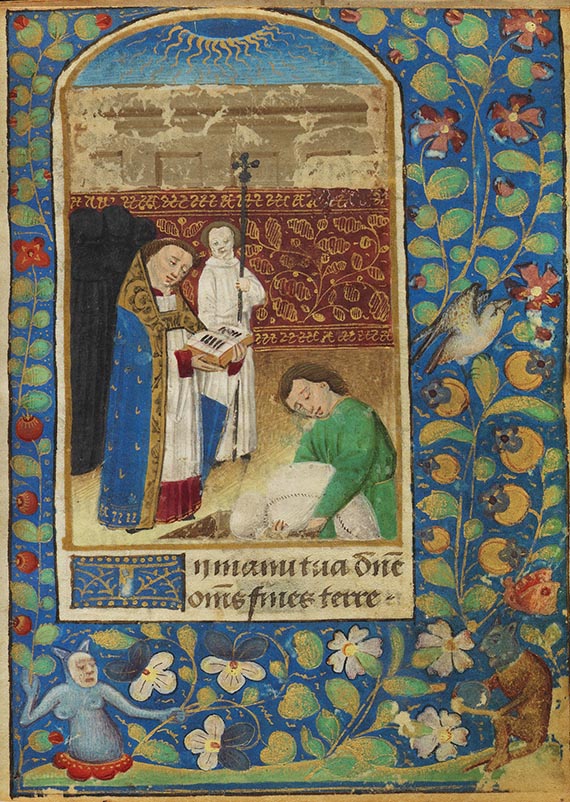 In manu tua dn̄e
om̄s fines terre